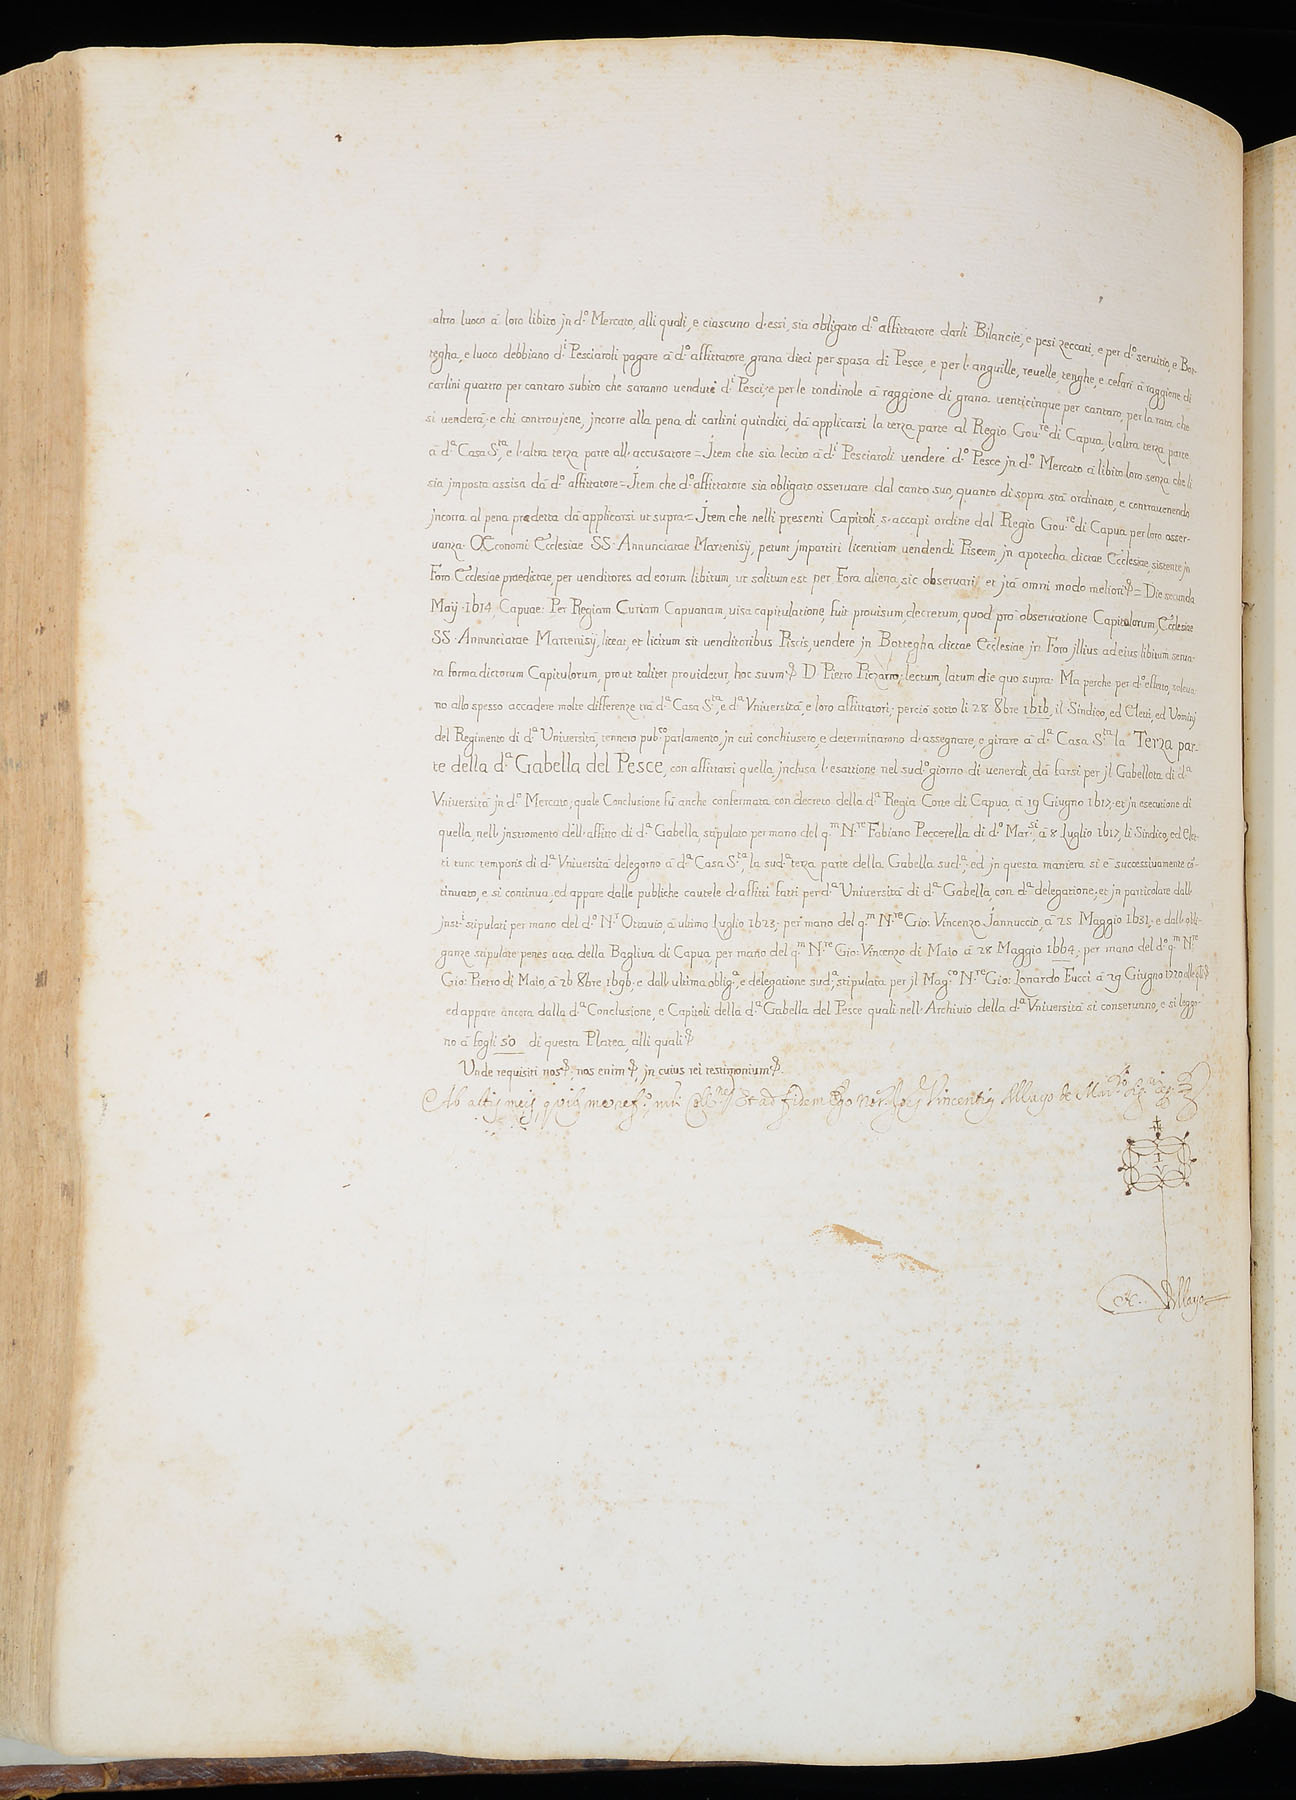 altro luoco à loro libito jn d.º Mercato, alli quali, e ciascuno d'essi, sia obligato d.º affittatore darli Bilancie, e pesi zeccati, e per d.º seruitio, e Bot-
tegha, e luoco debbiano d.i Pesciaroli pagare à d.º affittatore grana dieci per spasa di Pesce, e per l'anguille, reuelle, tenghe, e cefari à raggione di
carlini quattro per cantaro subito che saranno venduti d.i Pesci; e per le tondinole à raggione di grana uenticinque per cantaro, per la rata che
si venderà; e chi controujene, jncorre alla pena di carlini quindici, dà applicarsi la terza parte al Regio Gou.re di Capua, l'altra terza parte
à d.a Casa S.ta, e l'altra terza parte all'accusatore = Jtem che sia lecito à d.i Pesciaroli uendere d.º Pesce jn d.º Mercato à libito loro senza che li
sia jmposta assisa dà d.º affittatore = Jtem che d.º affittatore sia obligato osseruare dal canto suo, quanto di sopra stà ordinato, e contrauenendo
jncorra al pena predetta dà applicarsi ut supra = Jtem che nelli presenti Capitoli, s'accapi ordine dal Regio Gou.re di Capua per loro osser-
uanza. OEconomi Ecclesiae SS. Annunciatae Martenisij, petunt jmpartiri licentiam uendendi Piscem, jn apotecha dictae Ecclesiae, sistente jn
Foro Ecclesiae praedictae, per venditores ad eorum libitum, ut solitum est per Fora aliena, sic obseruari, et jtà omni modo meliori = Die secunda
Maij 1614 Capuae: Per Regiam Curiam Capuanam, uisa capitulatione, fuit prouisum, decretum, quod prò obseruatione Capitulorum, Ecclesiae
SS. Annunciatae Martenisij, liceat, et licitum sit uenditoribus Piscis, uendere jn Bottegha dictae Ecclesiae jn Foro jllius ad eius libitum serua-
ta forma dictorum Capitulorum, prout taliter prouidetur, hoc suum D. Pietro Pizzarro, lectum, latum die quo supra. Ma perche per d.º effetto, soleua-
no allo spesso accadere molte differenze trà d.a Casa S.ta, e d.a Vniversità, e loro affittatori; perciò sotto li 28 8bre 1616, il Sindico, ed Eletti, ed Uomini
del Regimento di d.a Università, tennero pub.co parlamento, jn cui conchiusero, e determinarono d'assegnare, e girare à d.a Casa S.ta la Terza par-
te della d.a Gabella del Pesce, con affittarsi quella, jnclusa l'esattione nel sud.º giorno di uenerdì, dà farsi per jl Gabellota di d.a
Vniversità jn d.º Mercato; quale Conclusione fù anche confermata con decreto della d.a Regia Corte di Capua à 19 Giugno 1617; et jn esecutione di
quella, nell'jnstromento dell'affitto di d.a Gabella, stipulato per mano del q.m N.re Fabiano Peccerella di d.º Mar.si, à 8 Luglio 1617, li Sindico, ed Elet-
ti tunc temporis di d.a Vniversità delegorno à d.a Casa S.ta, la sud.a terza parte della Gabella sud.a; ed jn questa maniera si è successiuamente cõ-
tinuato, e si continua, ed appare dalle publiche cautele d'affitti fatti per d.a Università di d.a Gabella, con d.a delegatione; et jn particolare dall'
jnst.i stipulati per mano del d.º N.r Ottauio à ultimo Luglio 1623; per mano del q.m N.re Gio: Vincenzo Jannuccio, à 25 Maggio 1631; e dall'obli-
ganze stipulate penes acta della Bagliua di Capua, per mano del q.m N.re Gio: Vincenzo di Maio à 28 Maggio 1664; per mano del d.º q.m N.re
Gio: Pietro di Maio, à 26 8bre 1696; e dall'ultima oblig.a, e delegatione sud.a, stipulata per jl Mag.co N.re Gio: Lonardo Fucci à 29 Giugno 1720,
ed appare àncora dalla d.a Conclusione, e Capitoli della d.a Gabella del Pesce quali nell'Archiuio della d.a Vniversità si conseruano, e si leggo-
no à fogli 50 di questa Platea, alli quali
Unde requisiti nos; nos enim, jn cuius rei testimonium.
Ab aliis meis, Et ad fidem Ego Not.r Vincentius Mayo de Mar.
I
V
Mayo